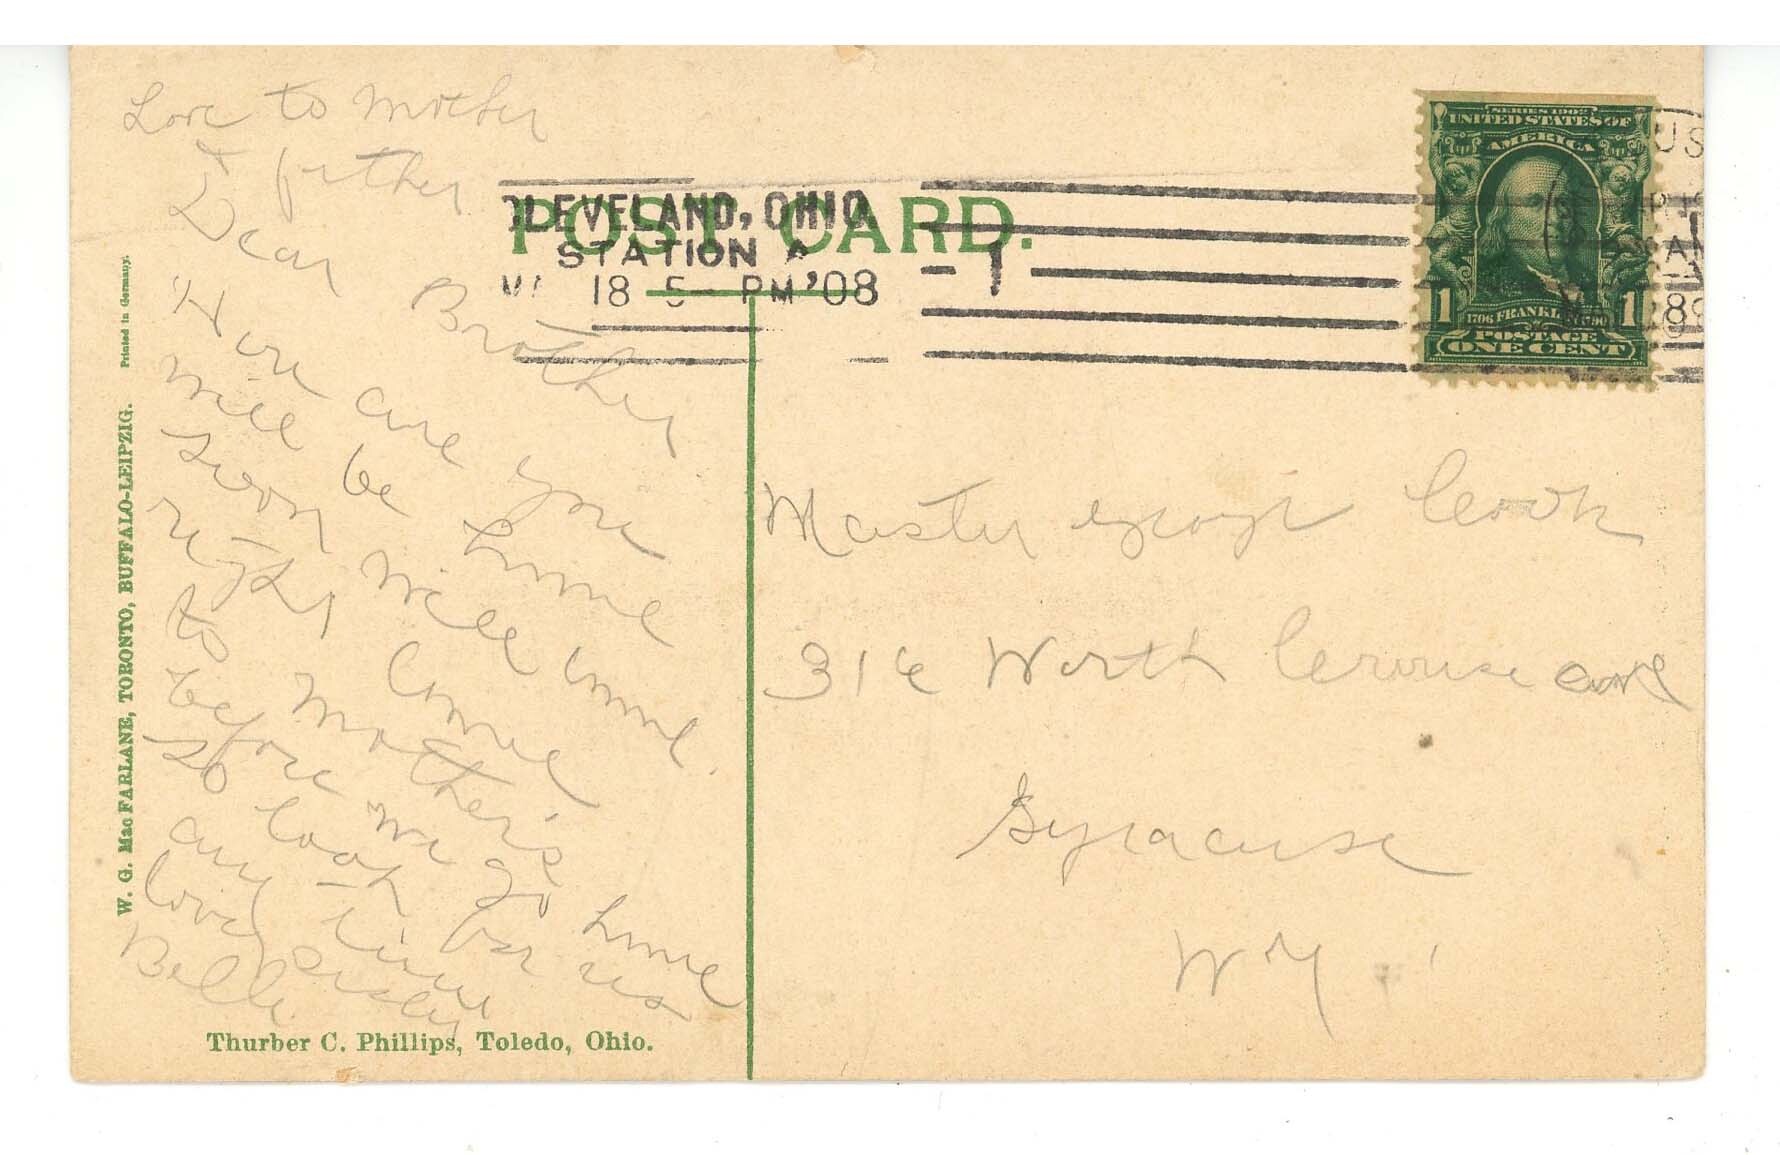 Love to Mother
+ father
Dear Brother
How are you
will be home
soon will come
right home
to Mother's
before we go home
so look for us
any time
love Sister
Belle
POST CARD.
CLEVELAND, OHIO.
STATION A
18 5- PM '08
1
SERIES 1902
UNITED STATES OF
AMERICA
1 1706 FRANKLIN 1790 1
POSTAGE
ONE CENT
Master George Cook
316 Worth Crouse ave
Syracuse
N Y
W. G. Mac FARLANE, TORONTO, BUFFALO-LEIPZIG. Printed in Germany.
Thurber C. Phillips, Toledo, Ohio.